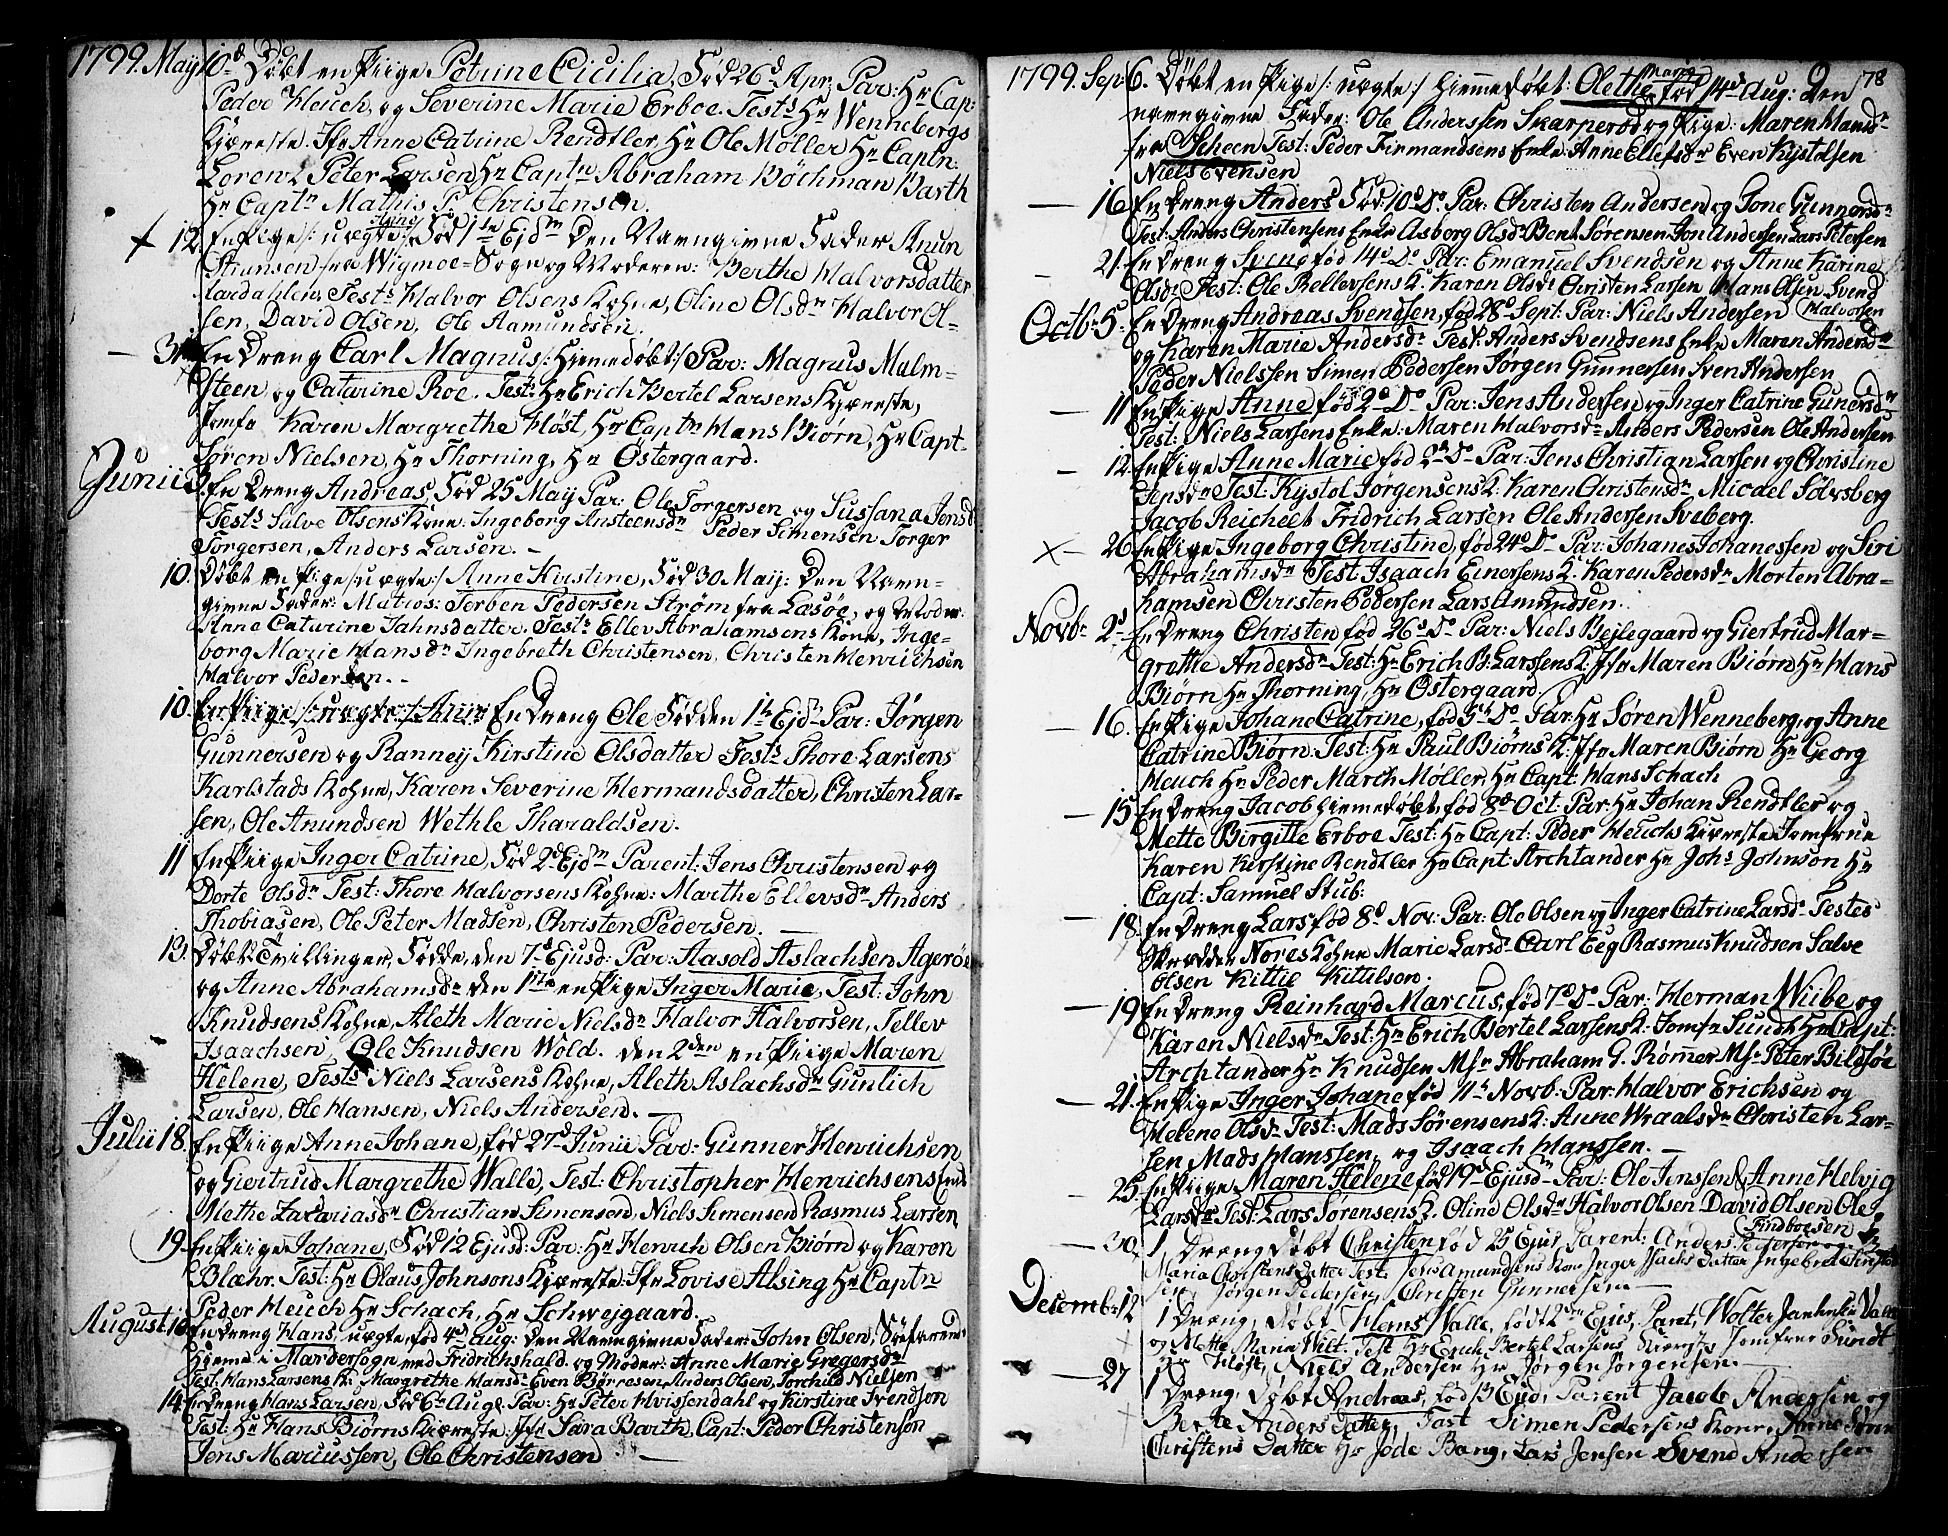 1799. May 10d Døbt en Piige Petrine Cicilia, Fød 26d Apr: Par: Hr Cap:
Peder Heuch, og Severine Marie Erboe. Tests Hr Wennebergs
Kjæreste. Jfr Anne Catrine Rendtler, Hr Ole Møller Hr Captn:
Lorentz Peter Larsen, Hr Captn Abraham Bøchman Barth
Hr Captn Mathis P. Christensen.
12. En Piige /: uægte :/ Anne Fød 1ste Ejdm Den Navngivne Fader Knun
fra Wigmoe-Sogn og Moderen: Berthe Halvorsdatter
Aardahlen, Tests Halvor Olsens Kohne, Oline Olsdr Halvor Ol-
sen, David Olsen, Ole Aamundsen.
31 En Dreng Carl Magnus /: Hjemedøbt :/ Par: Magnus Malm-
steen og Catarine Roe. Test: Hr Erich Bertel Larsens Kjæreste,
Jomfr Karen Margrethe Høst, Hr Captn Hans Biørn, Hr Capt-
Søren Nielsen, Hr Thorning, Hr Østergaard.
Junii 3. En Dreng Andreas, Fød 25 May Par: Ole Torgersen og Sussana Jensd
Tests Salve Olsens Kone. Ingeborg Ansteensdr Peder Simensen Torger
Torgersen, Anders Larsen. -
10. Døbt en Pige /: uægte :/ Anne Kirstine, Fød 30 May: Den Navn-
givne Fader: Matros: Torben Pedersen Strøm fra Læsøe, og Moder
Anne Caturine Jahnsdatter. Tests Ellev Abrahamsens Kone, Inge-
borg Marie Hansdr Ingebreth Christensen, Christen Henrichsen
Halvor Pedersen. -
10. En Piige /: uægte :/ En Dreng Ole Fød den 1te Ejdm Par: Jørgen
Gunnersen og Ranneÿ Kirstine Olsdatter Tests Thore Larsens
Karlstads Kohne, Karen Severine Hermandsdatter, Christen Lar-
sen, Ole Anundsen Wethle Tharaldsen.
11 En Piige Inger Catrine, Fød 2d Ejdm Parent: Jens Christensen og
Dorte Olsdr Test: Thore Halvorsens Kohne: Marthe Ellevsdr Anders
Thobiasen, Ole Peter Madsen, Christen Pedersen. -
13. Døbt Tvillinger, Fødde, den 7d Ejusd: Par: Aasold Aslachsen Agerøe
og Anne Abrahamsdr den 1ste en Piige Inger Marie, Test: John
Knudsens Kohne, Aleth Marie Nielsdr Halvor Halvorsen, Tellev
Isaachsen, Ole Knudsen Wold. den 2den en Piige Maren
Helene, Tests Niels Larsens Kohne, Aleth Aslachsdr Gunlich
Larsen, Ole Hansen, Niels Andersen. -
Julii 18. En Piige Anne Johane, fød 27d Junii Par: Gunner Henrichsen
og Giertrud Margrethe Walle, Test: Christopher Henrichsens Enke
Methe Zacariasdr Christian Simensen, Niels Simensen Rasmus Larsen
19. En Piige Johane, Fød 12 Ejusd: Par: Hr Henrich Olsen Biørn og Karen
Blahr. Test: Hr Olaus Johnsons Kjæreste. Jfr Lovise Alsing Hr Captn
Peder Heuch Hr Schach, Hr Schweigaard.
August 10 En Dreng Hans, uægte, fød 4d Aug: den Navngivne Fader: John Olsen, Søfarend
Hjeme i Mardersogn ved Fridrichshald og Moder: Anne Marie Gregersdr
Test: Hans Larsens K: Margrethe Hansdr Even Børresen, Anders Olsen, Torchild Nielsen
14. En Dreng Hans Larsen, Fød 6te Aug: Par: Hr Peter Hvissendahl og Kirstine Svendson
Test: Hr Hans Biørns Kiæreste: Jfr Sara Barth, Capt: Peder Christenson
Jens Marcussen, Ole Christensen -
1799. Sept 6. Døbt en Pige /: uægte :/ hjemedøbt: Olethe Maria fød 14d Aug: Den 78
navngivne Fader: Ole Anderssen Skarperød og Pige: Maren Hansdr
fra Scheen Test: Peder Firmandsens Enke: Anne Ellefsdr Even Kystolsen
Niels Evensen
16 En Dreng Anders Fød 10d Do. Par: Christen Andersen og Gone Gunnersdr
Test: Anders Christensens Enke Asborg Olsdr Bent Sørensen Jon Andersen Lars Petersen
21. En Dreng Svend fød 14d Do. Par: Emanuel Svendsen og Anne Karine
Olsdr Test: Ole Rellevsens K: Karen Olsdr Christen Larsen Hans Olsen Svend
Halvorsen
Octbr 5. En Dreng Andreas Svendsen, fød 28d Sept: Par: Niels Andersen
og Karen Marie Andersdr Test: Anders Svendsens Enke Maren Andersdr
Peder Nielssen Simen Pedersen Jørgen Gunnersen Sven Andersen
11 En Pige Anne fød 2d Do Par: Jens Andersen og Inger Catrine Gunersdr
Test: Niels Larsens Enke: Maren Halvorsdr Anders Pedersen Ole Andersen
12. En Pige Anne Marie fød Do Par: Jens Christian Larsen og Christine
Jensdr Test: Kystol Jørgensens K: Karen Christensdr Micael Sølvsberg
Jacob Reichelt Fridrich Larsen Ole Andersen Sveberg.
26 En Pige Ingeborg Christine, fød 24d Do Par: Johanes Johanessen og Siri
Abrahamsdr Test: Isaach Einersens K. Karen Pedersdr Morten Abra-
hamsen Christen Pedersen Lars Amundsen.
Novbr 2d En Dreng Christen fød 26d Do Par: Niels Bejlegaard og Giertrud Mar-
grette Andersdr Test: Hr Erich B: Larssens K: Jfr Maren Biørn Hr Hans
Biørn Hr Thorning, Hr Østergaard.
16. En Pige Johane Catrine, fød 5te Do Par: Hr Søren Wenneberg, og Anne
Catrine Biørn: Test: Hr Paul Biørns K: Jfr Maren Biørn Hr Georg
Heuch Hr Peder March Møller, Hr Capt: Hans Schach
15 En Dreng Jacob Hjemedøbt fød 8d Oct: Par: Hr Johan Rendtler og
Mette Birgitte Erboe Test: Hr Capt: Peder Heuchs Kjæreste Jomfrue
Karen Kerstine Rendtler Hr Capt: Archtander Hr Johs Johnson Hr
Capt: Samuel Stub:
18 En Dreng Lars fød 8d Nov: Par: Ole Olsen og Inger Catrine Larsd- Testes
Skrædder Nores Kohne Marie Larsd- Carl Eeg Rasmus Knudsen Salve
Olsen Kittie Kittilson.
19 En Dreng Reinhard Marcus, fød 7d Do Par: Herman Wiibe og
Karen Nielsdr Test: Hr Erich Bertel Larsens K: Jomfr Sundt Hr Capt:
Archtander Hr Knudsen Msr Abraham G. Rømer Msr Peter Bilsøe
21. En Pige Inger Johane fød 11te Novb: Par: Halvor Erichsen og
Helene Olsdr Test: Mads Sørensens K: Anne Wraalsdr Christen Lar-
sen Mads Hanssen, og Isaach Hanssen. -
25 En Piige Maren Helene, fød 19d Ejusd- Par: Ole Jenssen & Anne Helvig
Larsdr Test: Lars Sørensens K. Oline Olsdr Halvor Olsen David Olsen Ole
Findboesen
30, 1 Dreng Døbt Christen fød 25 Ejus Parent: Anders Pettersen
Maria Christens Datter Test: Jens Amundsens Kone Inger Isachs Datter Ingebret
sen, Jørgen Pedersen, Christen Gunnersen -
Decembr 12 1 Dreng, Døbt Hans Walle, født 2den Ejus, Parent, Wolter
og Mette Maria Wilt. Test Hr Erich Bertel Larsens Kiereste Jomfrue Sundt
Hr Høst, Niels Andersen Hr Jørgen Jørgensen. -
27 1 Dreng, Døbt Andreas, fød Ejud, Parent Jacob Andersen og
Berte Anders Datter, Test Simen Pedersens Kone, Anne
Christens Datter Hr Jøde Bang, Lars Jensen Svend Andersen